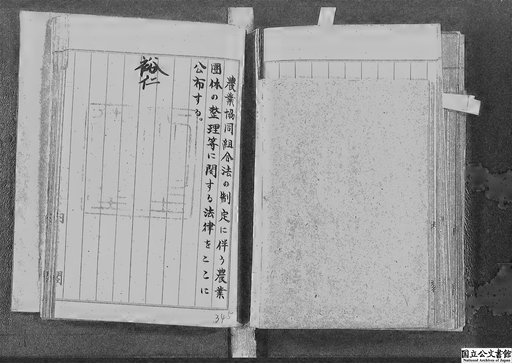 農業協同組合法の制定に伴う農業
団体の整理等に関する法律をここに
公布する。
裕仁
345
国立公文書館
National Archives of Japan